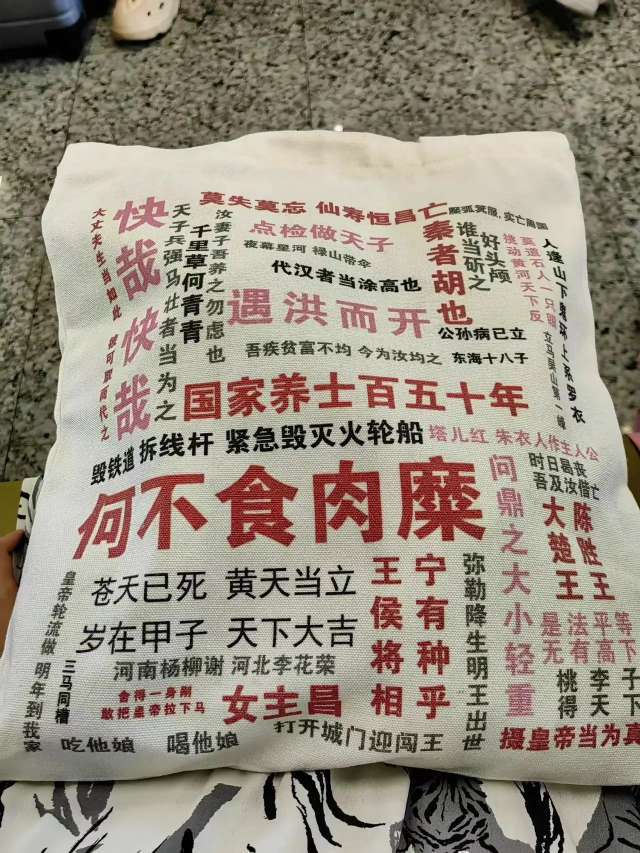 莫失莫忘 仙寿恒昌
亡秦者胡也
檿弧箕服，实亡周国
大丈夫生当如此
彼可取而代之
快哉快哉
天子兵强马壮者当为之
千里草何青青
汝妻子吾养之勿虑也
点检做天子
夜幕星河 禄山带伞
代汉者当涂高也
遇洪而开
公孙病已立
吾疾贫富不均 今为汝均之
东海十八子
好头颅
谁当斫之
莫道石人一只眼
挑动黄河天下反
人逢山下鬼环上系罗衣
立马吴山第一峰
国家养士百五十年
毁铁道 拆线杆 紧急毁灭火轮船
塔儿红 朱衣人作主人公
何不食肉糜
问鼎之大小轻重
时日曷丧
吾及汝偕亡
大楚王
陈胜王
苍天已死 黄天当立
岁在甲子 天下大吉
王侯将相
宁有种乎
弥勒降生明王出世
是法平等
无有高下
桃李子
得天下
皇帝轮流做 明年到我家
三马同槽
河南杨柳谢 河北李花荣
舍得一身剐
敢把皇帝拉下马
女主昌
吃他娘 喝他娘
打开城门迎闯王
摄皇帝当为真